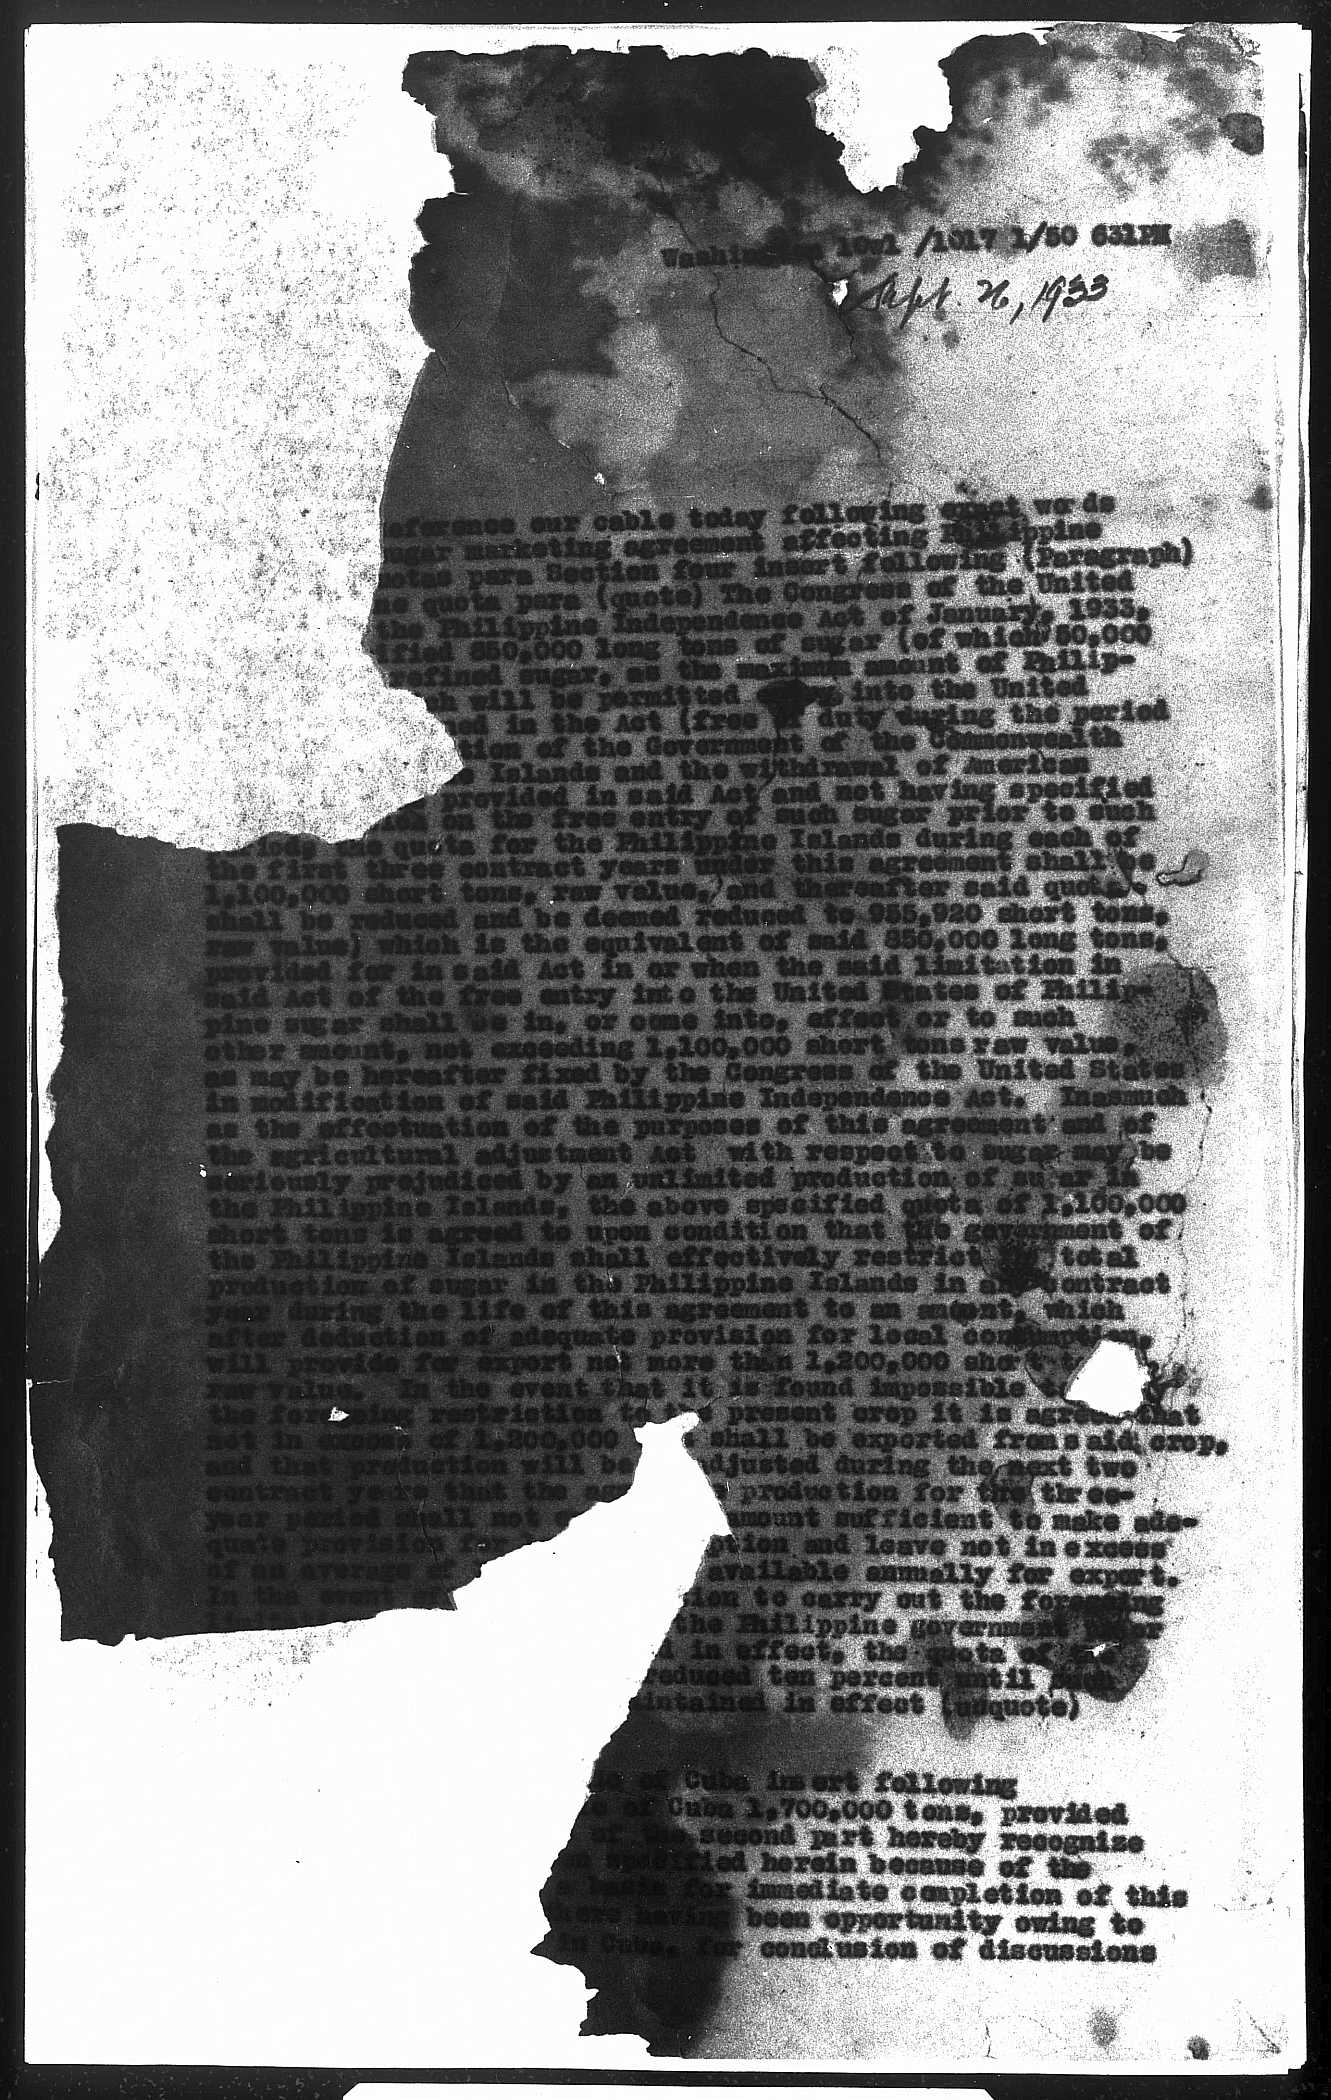 Washington 1/50 631PM
Sept. 26, 1933
eference our cable today following exact words
ugar marketing agreement affecting Philippine
uotas para Section four insert following (Paragraph)
ne quota para (quote) The Congress of the United
the Philippine Independence Act of January, 1933,
ified 850,000 long tons of sugar (of which 50,000
refined sugar, as the maximum amount of Philip-
ch will be permitted into the United
ned in the Act (free of duty duging the period
tion of the Government of the Commonwealth
e Islands and the withdrawal of American
provided in said Act and not having specified
on the free entry of such sugar prior to such
quota for the Philippine Islands during each of
the first three contract years under this agreement shall be
1,100,000 short tons, raw value, and thereafter said quota
shall be reduced and be deemed reduced to 955,920 short tons,
raw value, which is the equivalent of said 850,000 long tons,
provided for in said Act in or when the said limitation in
said Act of the free entry into the United States of Philip-
pine sugar shall be in, or come into, effect or to such
other amount, not exceeding 1,100,000 short tons raw value,
as may be hereafter fixed by the Congress of the United States
in modification of said Philippine Independence Act. Inasmuch
as the effectuation of the purposes of this agreement and of
the agricultural adjustment Act with respect to sugar may be
seriously prejudiced by an unlimited production of sugar in
the Philippine Islands, the above specified quota of 1,100,000
short tons is agreed to upon condition that the government of
the Philippine Islands shall effectively restrict total
production of sugar in the Philippine Islands in any contract
year during the life of this agreement to an amount, which
after deduction of adequate provision for local consumption,
will provide for export not more than 1,200,000 short
raw value. In the event that it is found impossible to
the foregoing restriction to the present crop it is agreed that
not in excess of 1,200,000 shall be exported from said crop,
and that production will be adjusted during the next two
contract years that the production for the three-
year period shall not amount sufficient to make ade-
quate provision for ption and leave not in excess
of an average of available annually for export.
in the event tion to carry out the foregoing
the Philippine government
d in effect, the quota of
reduced ten percent until such
intained in effect (unquote)
of Cuba insert following
of Cuba 1,700,000 tons, provided
of the second part hereby recognize
specified herein because of the
basis for immediate completion of this
having been opportunity owing to
in Cuba, for conclusion of discussions